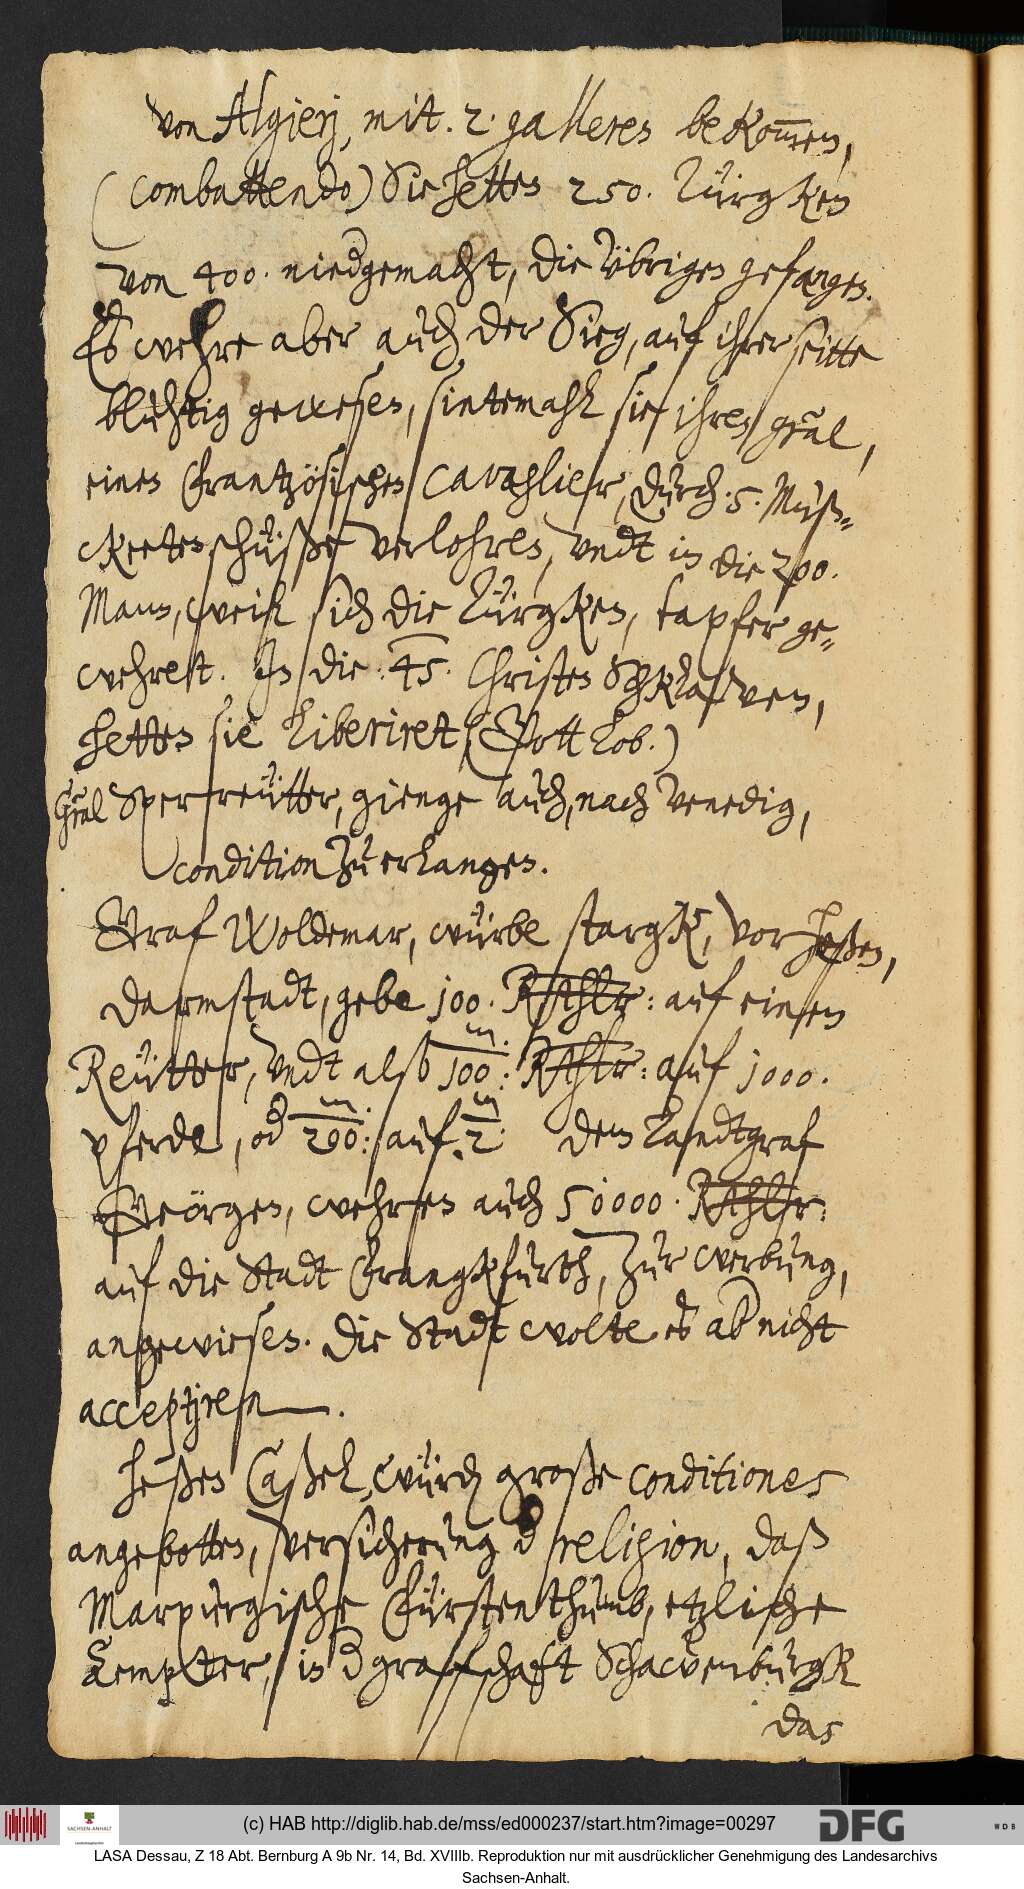 von Algierj, mit. 2. galleres bekom̅en,
(combattendo) Sie hetten 250. Türgken
von 400. niedgemacht, die Übrigen gefangen.
Es wehre aber auch der Sieg, auf ihrer seitte
bluhtig gewesen, sintemahl sie ihren gn̅al,
einen Frantzösischen Cavahlier, durch .5. Muß-
ckeetenschüße verlohren, vndt in die 200.
Mann, weil sich die Türgken, tapfer ge-
wehret. In die .45. Christen Schklafven,
hetten sie liberiret, (Gott lob.)
Gn̅al Sperreütter, gienge auch, nach Venedig,
condition zu erlangen.
Graf Woldemar, würbe stargk, vor Heßen,
Darmstadt, gebe 100. Rthlr: auf einen
Reütter, vndt also 100 m.: Rthlr: auf 1000.
pferde, od 200 m.: auf .2 m. dem Landtgraf
Geörgen, wehren auch 50000. Rthlr:
auf die Stadt Frangkfurth, zur werbung,
angewiesen. Die Stadt wolte es ab nicht
acceptjren.
Heßen Caßel, würden große conditiones
angebotten, versicherung d religion, daß
Marpurgische Fürstenthumb, etzliche
Aempter, in d graffschaft Schawenburgk
das
(c) HAB http://diglib.hab.de/mss/ed000237/start.htm?image=00297
SACHSEN-ANHALT
DFG
WDB
LASA Dessau, Z 18 Abt. Bernburg A 9b Nr. 14, Bd. XVIIIb. Reproduktion nur mit ausdrücklicher Genehmigung des Landesarchivs
Sachsen-Anhalt.